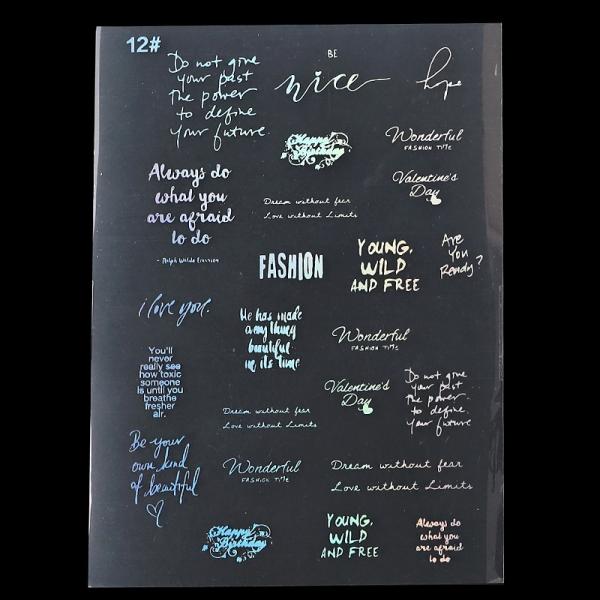 12#
Do not give
your past
the power
to define
your future.
BE
nice
hope
Happy
Birthday
Wonderful
FASHION TIME
Valentine's
Day
Always do
what you
are afraid
to do
- Ralph Waldo Emerson
Dream without fear
Love without Limits
FASHION
YOUNG,
WILD
AND FREE
Are
You
Ready?
i love you.
He has made
anything
beautiful
in its time
Wonderful
FASHION TIME
You'll
never
really see
how toxic
someone
is until you
breathe
fresher
air.
Valentine's
Day
Do not give
your past
the power
to define.
your future
Dream without fear
Love without Limits
Be your
own kind
of beautiful
Wonderful
FASHION TIME
Dream without fear
Love without Limits
Happy
Birthday
YOUNG,
WILD
AND FREE
Always do
what you
are afraid
to do